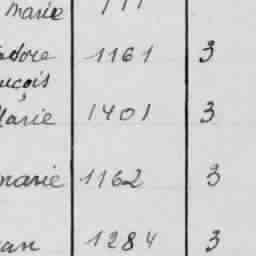 Marie
adore 1161 3
nçois
Marie 1401 3
marie 1162 3
an 1284 3